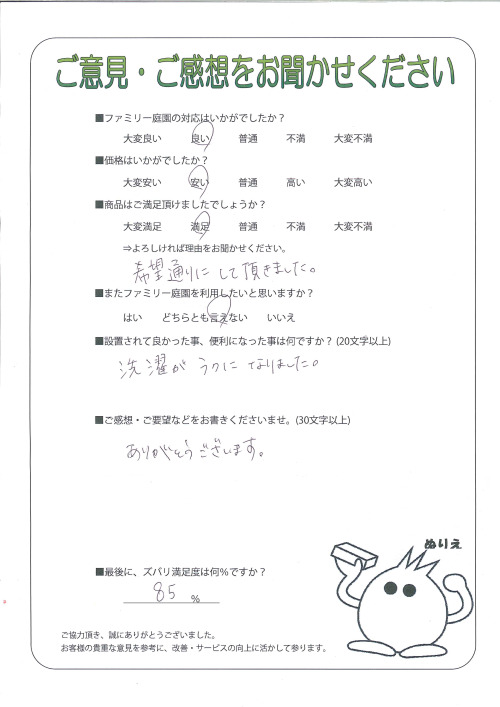 ご意見・ご感想をお聞かせください
■ファミリー庭園の対応はいかがでしたか？
大変良い 良い 普通 不満 大変不満
■価格はいかがでしたか？
大変安い 安い 普通 高い 大変高い
■商品はご満足頂けましたでしょうか？
大変満足 満足 普通 不満 大変不満
⇒よろしければ理由をお聞かせください。
希望通りにして頂きました。
■またファミリー庭園を利用したいと思いますか？
はい どちらとも言えない いいえ
■設置されて良かった事、便利になった事は何ですか？(20文字以上)
洗濯がラクになりました。
■ご感想・ご要望などをお書きくださいませ。(30文字以上)
ありがとうございます。
ぬりえ
■最後に、ズバリ満足度は何％ですか？
85 %
ご協力頂き、誠にありがとうございました。
お客様の貴重な意見を参考に、改善・サービスの向上に活かして参ります。